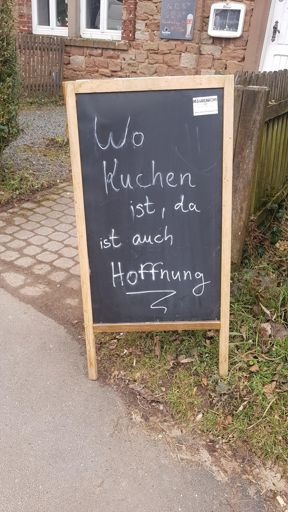 Wo
Kuchen
ist, da
ist auch
Hoffnung